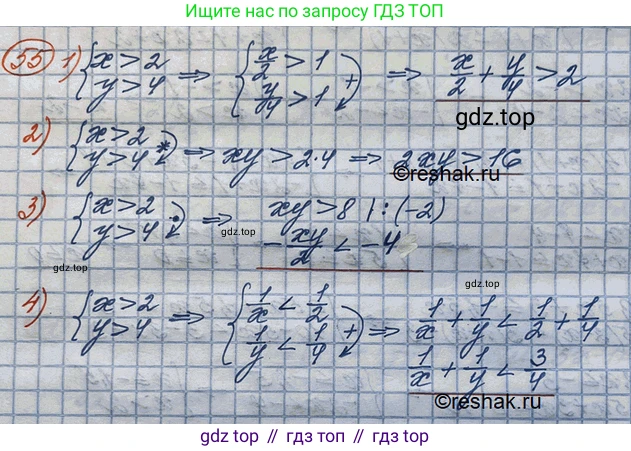 Ищите нас по запросу ГДЗ ТОП
55 1) {x > 2 y > 4 ⇒ {x/2 > 1 y/4 > 1 + ⇒ x/2 + y/4 > 2
gdz.top
2) {x > 2 y > 4 * ⇒ xy > 2·4 ⇒ 2xy > 16
©reshak.ru
3) {x > 2 y > 4 · ⇒ xy > 8 | : (-2)
gdz.top gdz.top
- xy/2 < -4
4) {x > 2 y > 4 ⇒ {1/x < 1/2 1/y < 1/4 + ⇒ 1/x + 1/y < 1/2 + 1/4
gdz.top
1/x + 1/y < 3/4
©reshak.ru
gdz top // гдз топ // gdz.top